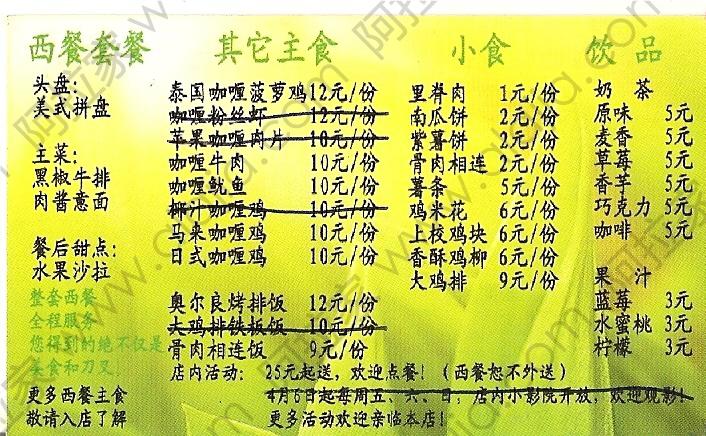 西餐套餐
头盘:
美式拼盘
主菜:
黑椒牛排
肉酱意面
餐后甜点:
水果沙拉
整套西餐
全程服务
您得到的绝不仅是
美食和刀叉
更多西餐主食
敬请入店了解
其它主食
泰国咖喱菠萝鸡12元/份
咖喱粉丝虾 12元/份
苹果咖喱肉片 10元/份
咖喱牛肉 10元/份
咖喱鱿鱼 10元/份
椰汁咖喱鸡 10元/份
马来咖喱鸡 10元/份
日式咖喱鸡 10元/份
奥尔良烤排饭 12元/份
大鸡排铁板饭 10元/份
骨肉相连饭 9元/份
小食
里脊肉 1元/份
南瓜饼 2元/份
紫薯饼 2元/份
骨肉相连 2元/份
薯条 5元/份
鸡米花 6元/份
上校鸡块 6元/份
香酥鸡柳 6元/份
大鸡排 9元/份
饮品
奶茶
原味 5元
麦香 5元
草莓 5元
香芋 5元
巧克力 5元
咖啡 5元
果汁
蓝莓 3元
水蜜桃 3元
柠檬 3元
店内活动: 25元起送,欢迎点餐!(西餐恕不外送)
4月6日起每周五、六、日,店内小影院开放,欢迎观影!
更多活动欢迎亲临本店!